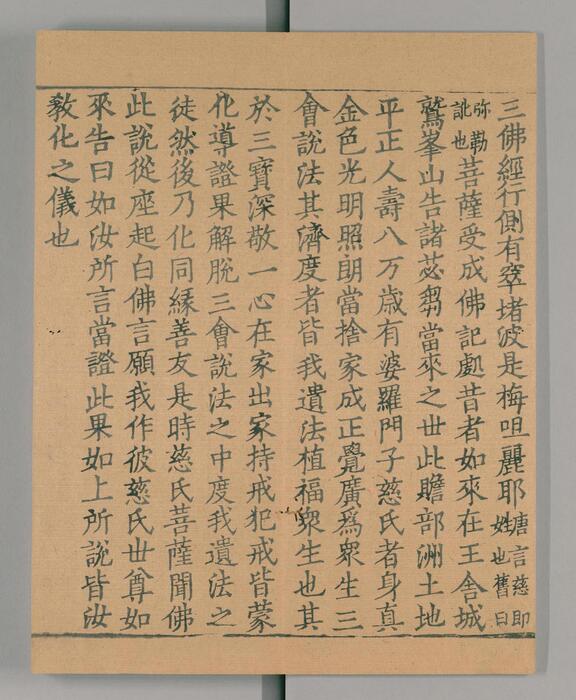 三佛經行側有窣堵波是梅呾麗耶唐言慈即姓也舊曰
弥勒訛也菩薩受成佛記處昔者如來在王舍城
鷲峯山告諸苾芻當來之世此贍部洲土地
平正人壽八万歲有婆羅門子慈氏者身真
金色光明照朗當捨家成正覺廣爲眾生三
會說法其濟度者皆我遺法植福眾生也其
於三寶深敬一心在家出家持戒犯戒皆蒙
化導證果解脫三會說法之中度我遺法之
徒然後乃化同緣善友是時慈氏菩薩聞佛
此說從座起白佛言願我作彼慈氏世尊如
來告曰如汝所言當證此果如上所說皆汝
敎化之儀也